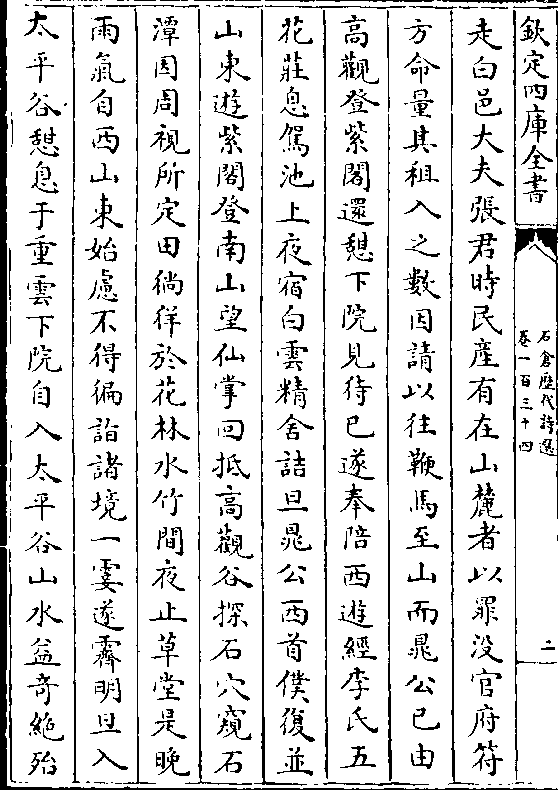 欽定四庫全書
石倉歷代詩選
卷一百三十四
二
走白邑大夫張君時民產有在山麓者以罪没官府符
方命量其租入之數因請以往鞭馬至山而晁公已由
高觀登紫閣還憇下院見待已遂奉陪西遊經李氏五
花莊息駕池上夜宿白雲精舍詰旦晁公西首僕復並
山東遊紫閣登南山望仙掌回抵高觀谷探石穴窺石
潭因周視所定田徜徉於花林水竹間夜止草堂是晚
雨氣自西山東始慮不得徧詣諸境一霎遂霽明旦入
太平谷憇息于重雲下院自入太平谷山水益竒絶殆